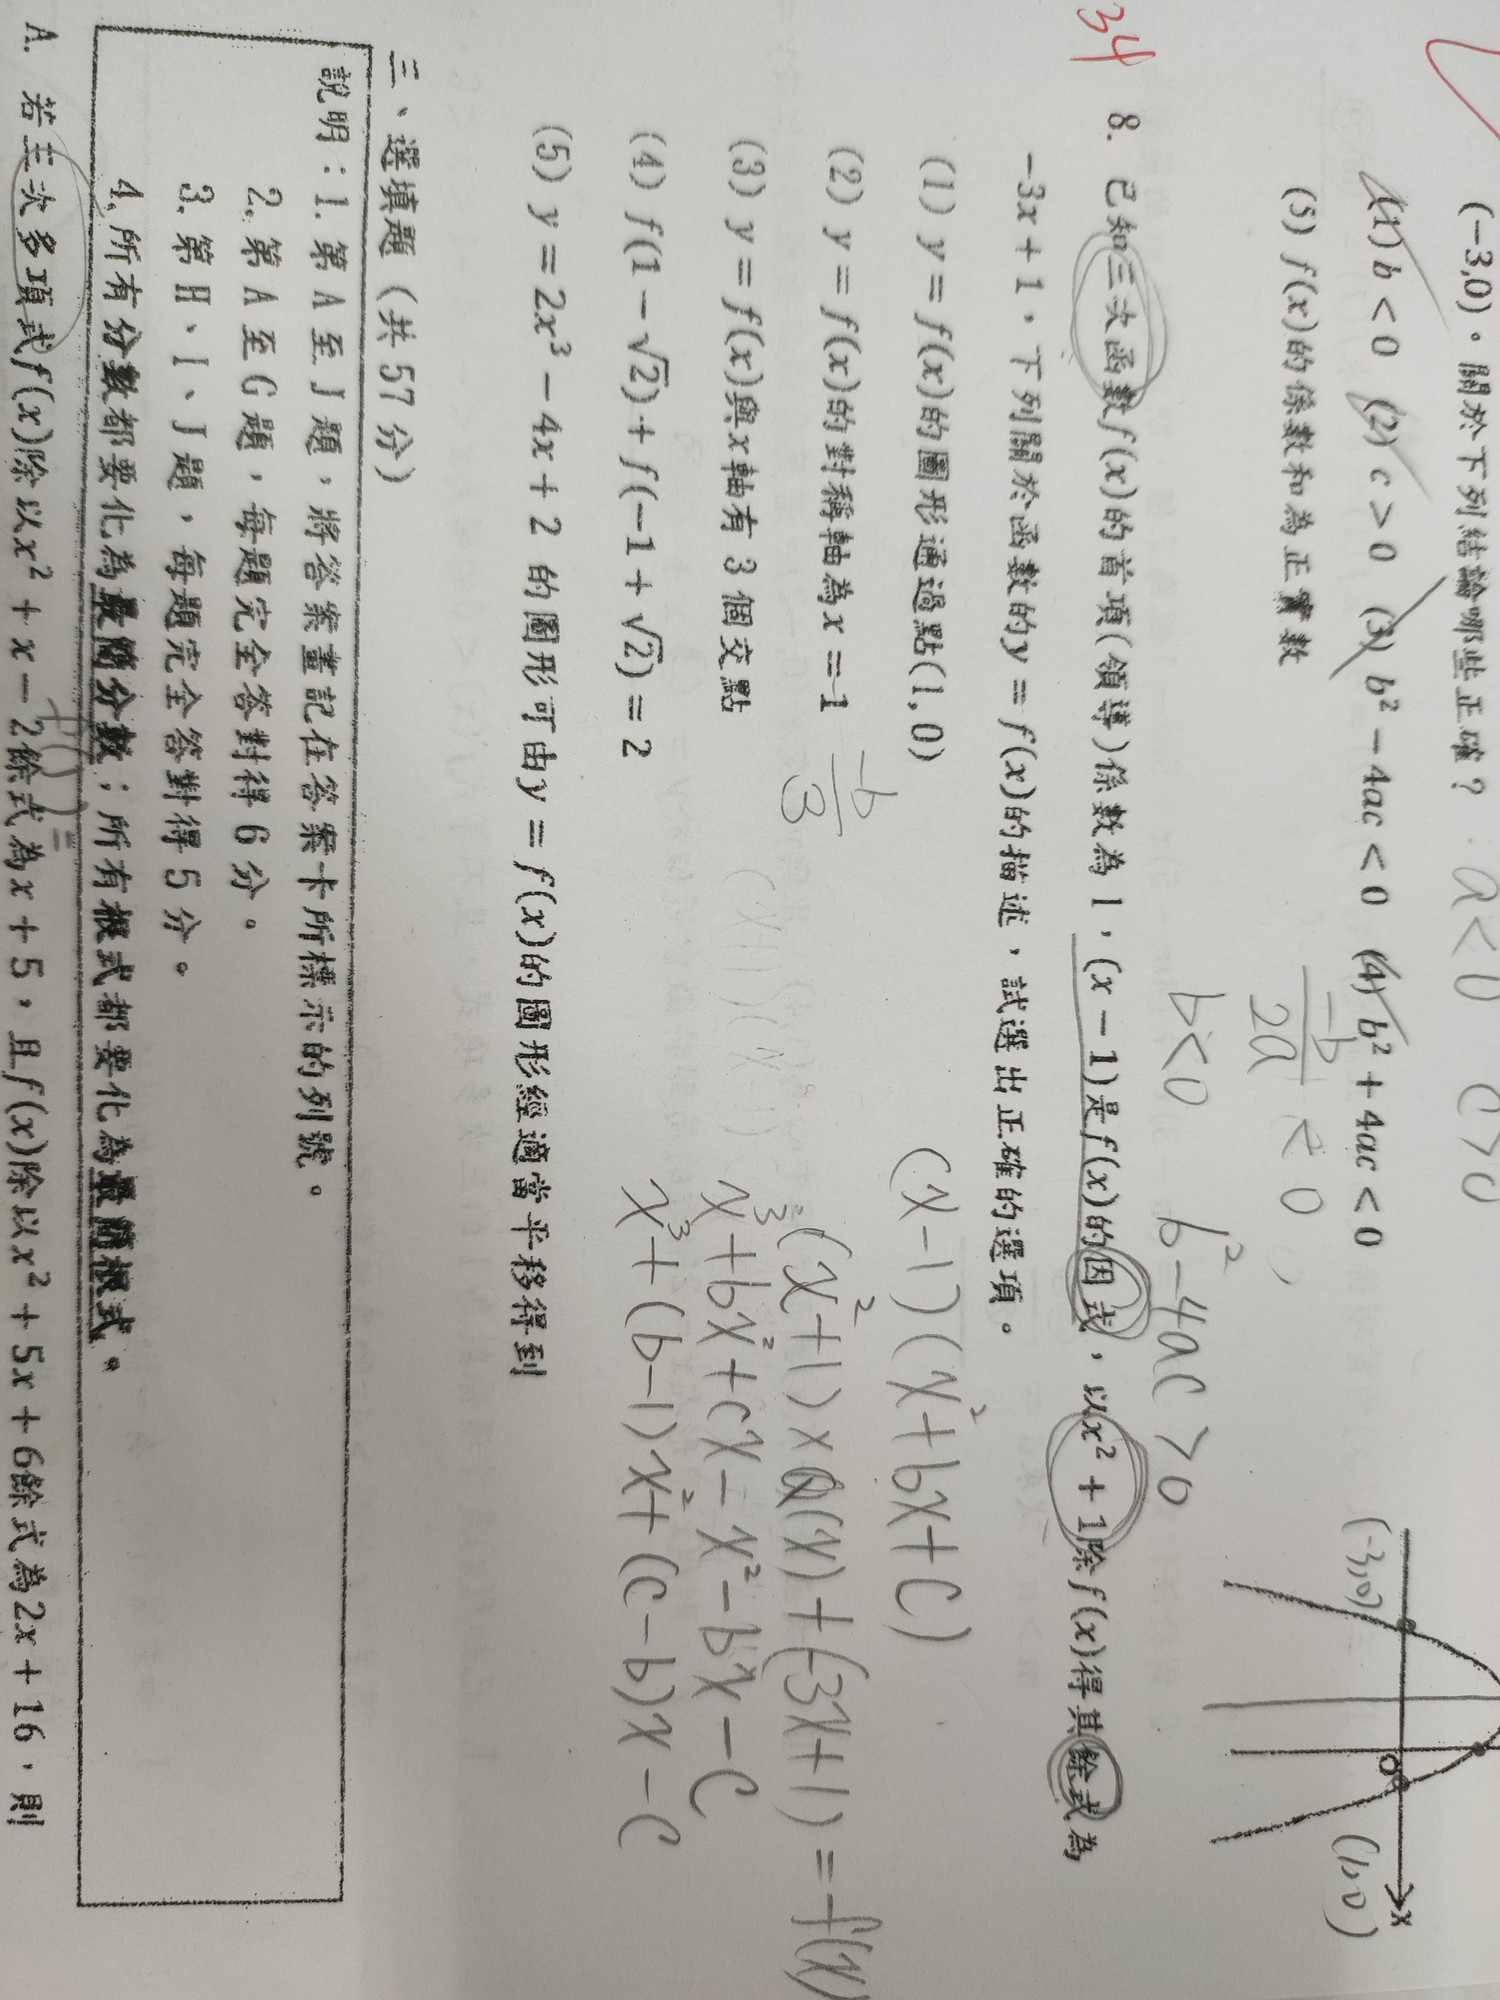 (−3,0)。關於下列結論哪些正確？
a<0 c>0
(1) b < 0 (2) c > 0 (3) b² − 4ac < 0 (4) b² + 4ac < 0
(5) f(x)的係數和為正實數
-b/2a < 0
b<0 b²-4ac>0
(-3,0) O (1,0) x
34
8. 已知三次函數f(x)的首項(領導)係數為 1，(x − 1)是f(x)的因式，以x² + 1除f(x)得其餘式為
−3x + 1，下列關於函數的y = f(x)的描述，試選出正確的選項。
(1) y = f(x)的圖形通過點(1,0)
(2) y = f(x)的對稱軸為x = −1
-b/3
(3) y = f(x)與x軸有 3 個交點
(4) f(1 − √2) + f(−1 + √2) = 2
(5) y = 2x³ − 4x + 2 的圖形可由y = f(x)的圖形經適當平移得到
(x-1)(x²+bx+c)
(x²+1)×Q(x)+(-3x+1)=f(x)
x³+bx²+cx-x²-bx-c
x³+(b-1)x²+(c-b)x-c
三、選填題（共 57 分）
說明：1. 第 A 至 J 題，將答案畫記在答案卡所標示的列號。
2. 第 A 至 G 題，每題完全答對得 6 分。
3. 第 H、I、J 題，每題完全答對得 5 分。
4. 所有分數都要化為最簡分數；所有根式都要化為最簡根式。
A. 若三次多項式f(x)除以x² + x − 2餘式為x + 5，且f(x)除以x² + 5x + 6餘式為2x + 16，則